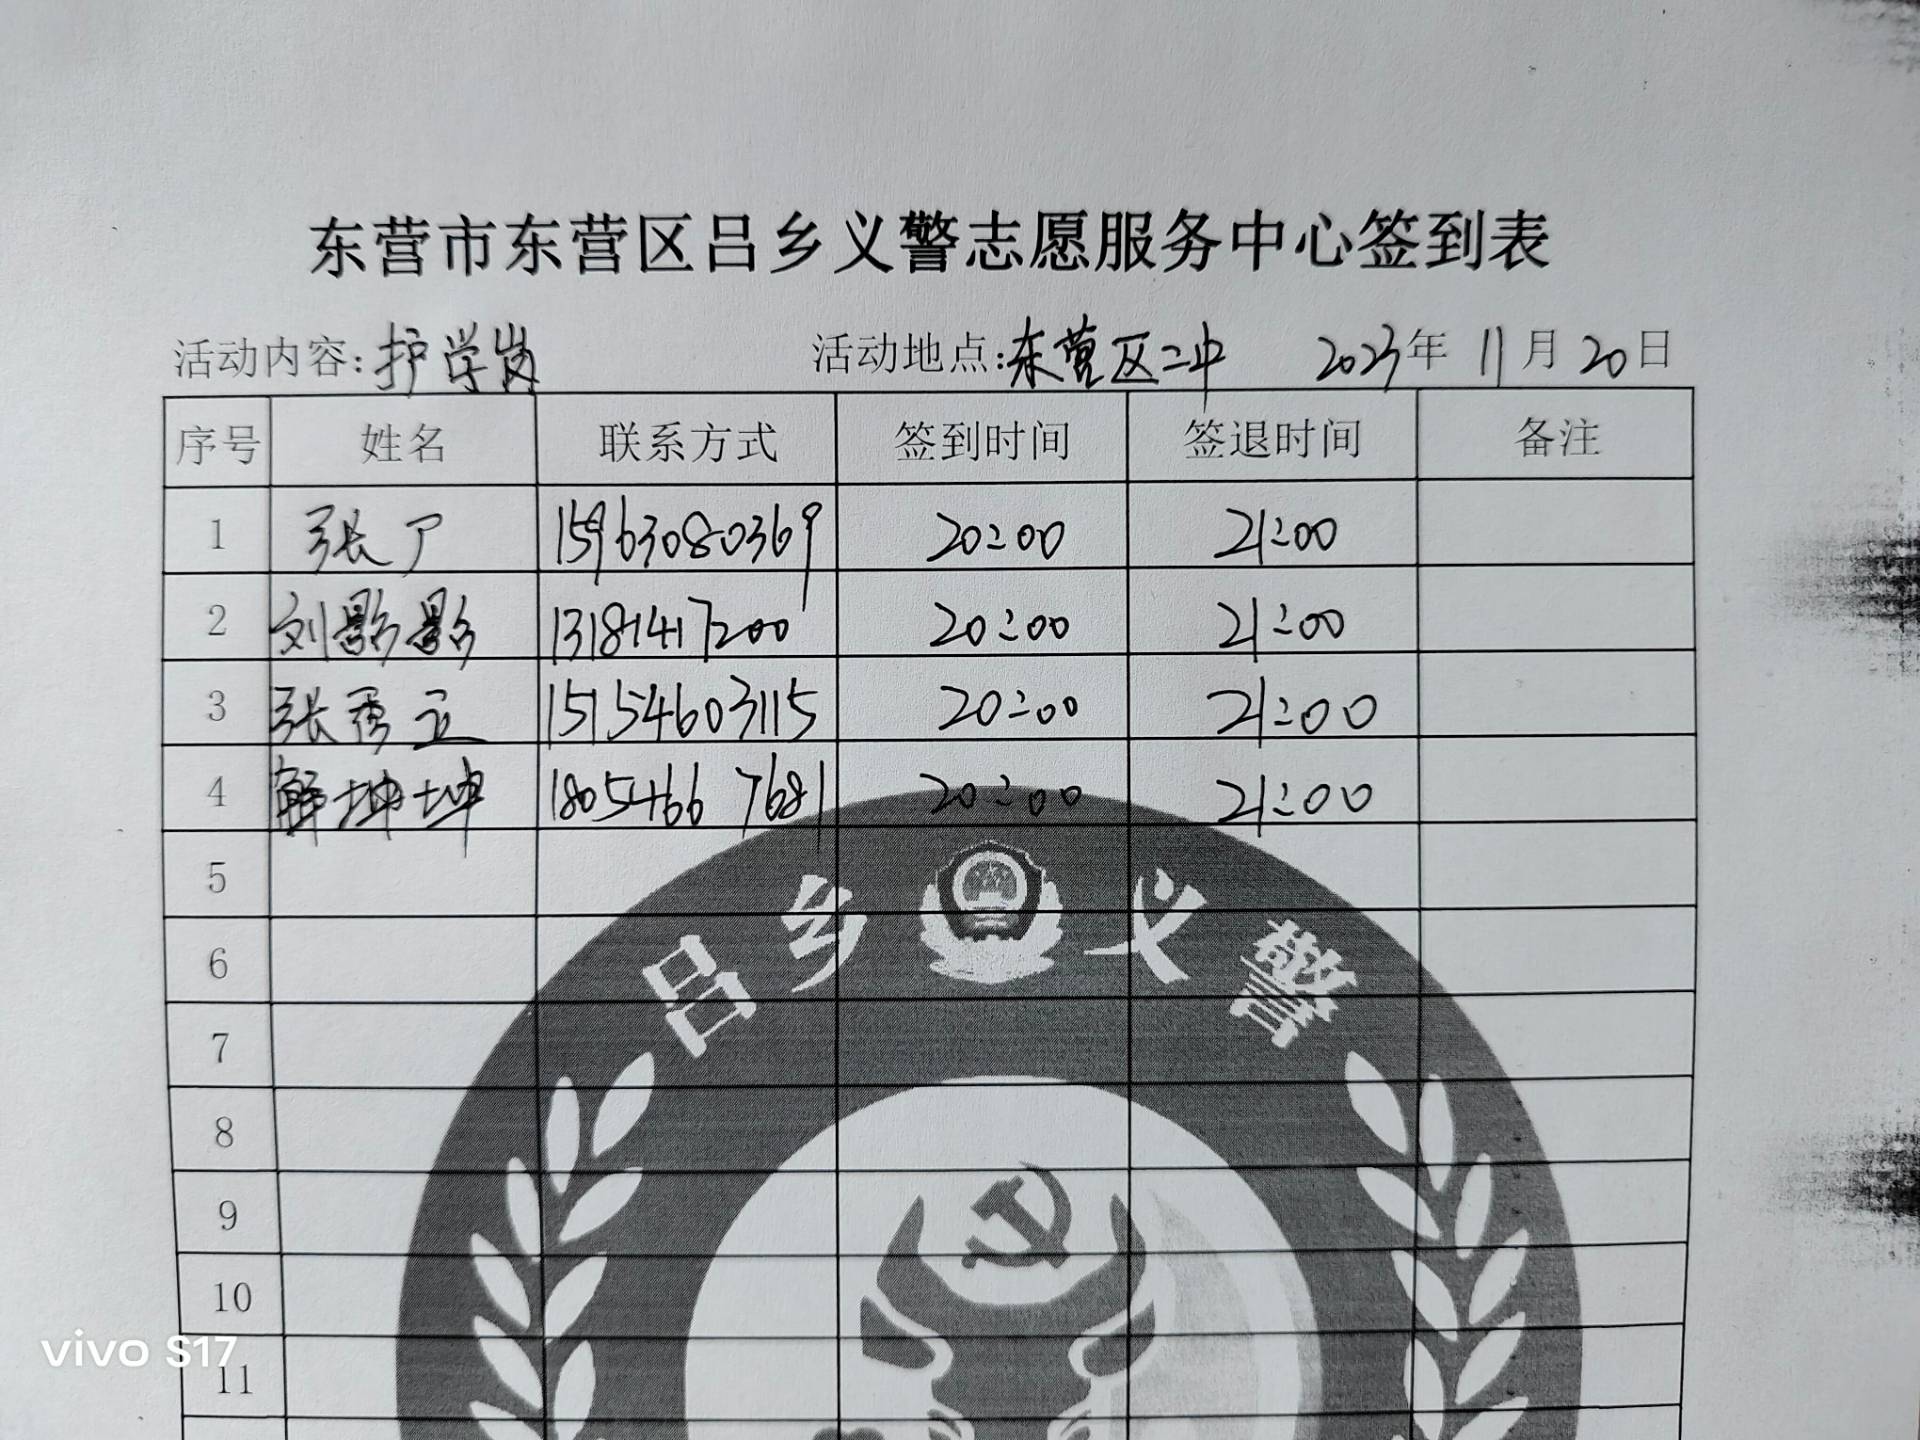 东营市东营区吕乡义警志愿服务中心签到表
活动内容:护学岗 活动地点:东营区二中 2023年 11月20日
序号 姓名 联系方式 签到时间 签退时间 备注
1 张 15963080369 20:00 21:00
2 刘影影 13181417200 20:00 21:00
3 张秀立 15154603115 20:00 21:00
4 韩坤坤 18054667681 20:00 21:00
5
6
7
8
9
10
11
吕乡义警
vivo S17